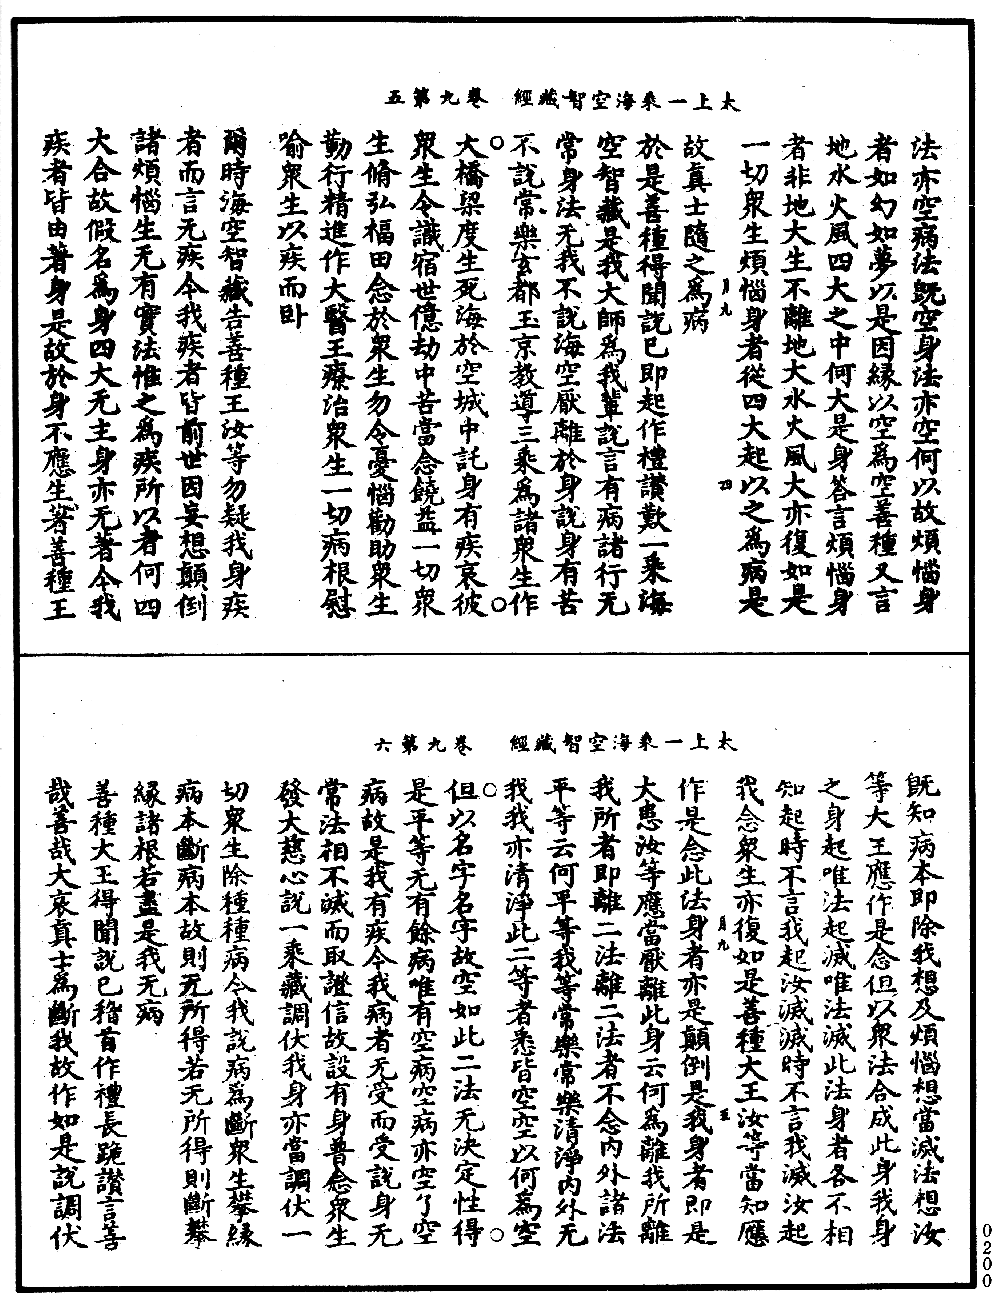 太上一乘海空智藏經　卷九第五
法亦空病法旣空身法亦空何以故煩惱身
者如幻如夢以是因緣以空爲空善種又言
地水火風四大之中何大是身答言煩惱身
者非地大生不離地大水火風大亦復如是
一切衆生煩惱身者從四大起以之爲病是
月九　四
故真士隨之爲病
於是善種得聞說已即起作禮讚歎一乘海
空智藏是我大師爲我輩說言有病諸行无
常身法无我不說海空厭離於身說身有苦
不說常樂玄都玉京教導三乘爲諸衆生作
大橋梁度生死海於空城中託身有疾哀彼
衆生令識宿世億劫中苦當念饒益一切衆
生脩弘福田念於衆生勿令憂惱勸助衆生
勤行精進作大醫王療治衆生一切病根慰
喻衆生以疾而卧
爾時海空智藏告善種王汝等勿疑我身疾
者而言无疾今我疾者皆前世因妄想顛倒
諸煩惱生无有實法惟之爲疾所以者何四
大合故假名爲身四大无主身亦无著今我
疾者皆由著身是故於身不應生著善種王
太上一乘海空智藏經　卷九第六
旣知病本即除我想及煩惱想當滅法想汝
等大王應作是念但以衆法合成此身我身
之身起唯法起滅唯法滅此法身者各不相
知起時不言我起汝滅滅時不言我滅汝起
我念衆生亦復如是善種大王汝等當知應
月九　五
作是念此法身者亦是顛倒是我身者即是
大患汝等應當厭離此身云何爲離我所離
我所者即離二法離二法者不念內外諸法
平等云何平等我等常樂常樂清淨內外无
我我亦清淨此二等者悉皆空空以何爲空
但以名字名字故空如此二法无決定性得
是平等无有餘病唯有空病空病亦空了空
病故是我有疾今我病者无受而受說身无
常法相不滅而取證信故設有身普念衆生
發大慈心說一乘藏調伏我身亦當調伏一
切衆生除種種病今我說病爲斷衆生攀緣
病本斷病本故則无所得若无所得則斷攀
緣諸根若盡是我无病
善種大王得聞說已稽首作禮長跪讚言善
哉善哉大哀真士爲斷我故作如是說調伏
0200